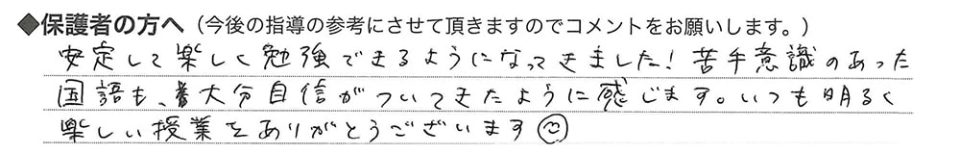 ◆保護者の方へ（今後の指導の参考にさせて頂きますのでコメントをお願いします。）
安定して楽しく勉強できるようになってきました！苦手意識のあった
国語も、大分自信がついてきたように感じます。いつも明るく
楽しい授業をありがとうございます☺